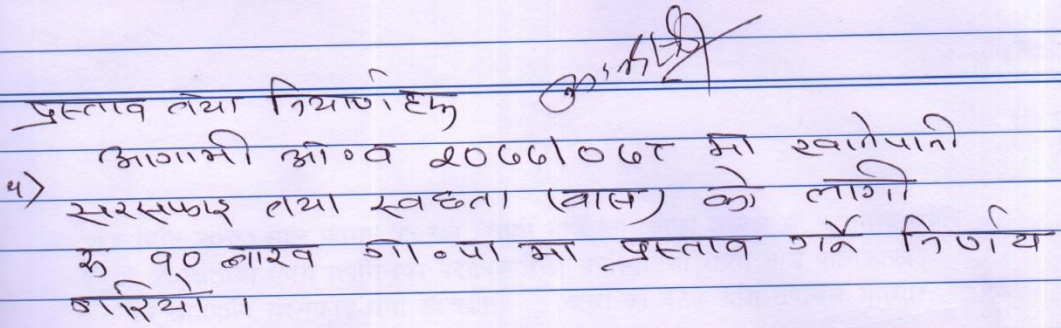 प्रस्ताव तथा निर्णयहरू
आगामी आ०व २०७७/०७८ मा खानेपानी
५) सरसफाइ तथा स्वछता (वास) को लागी
रु १० लाख गा०पा मा प्रस्ताव गर्ने निर्णय
गरियो ।